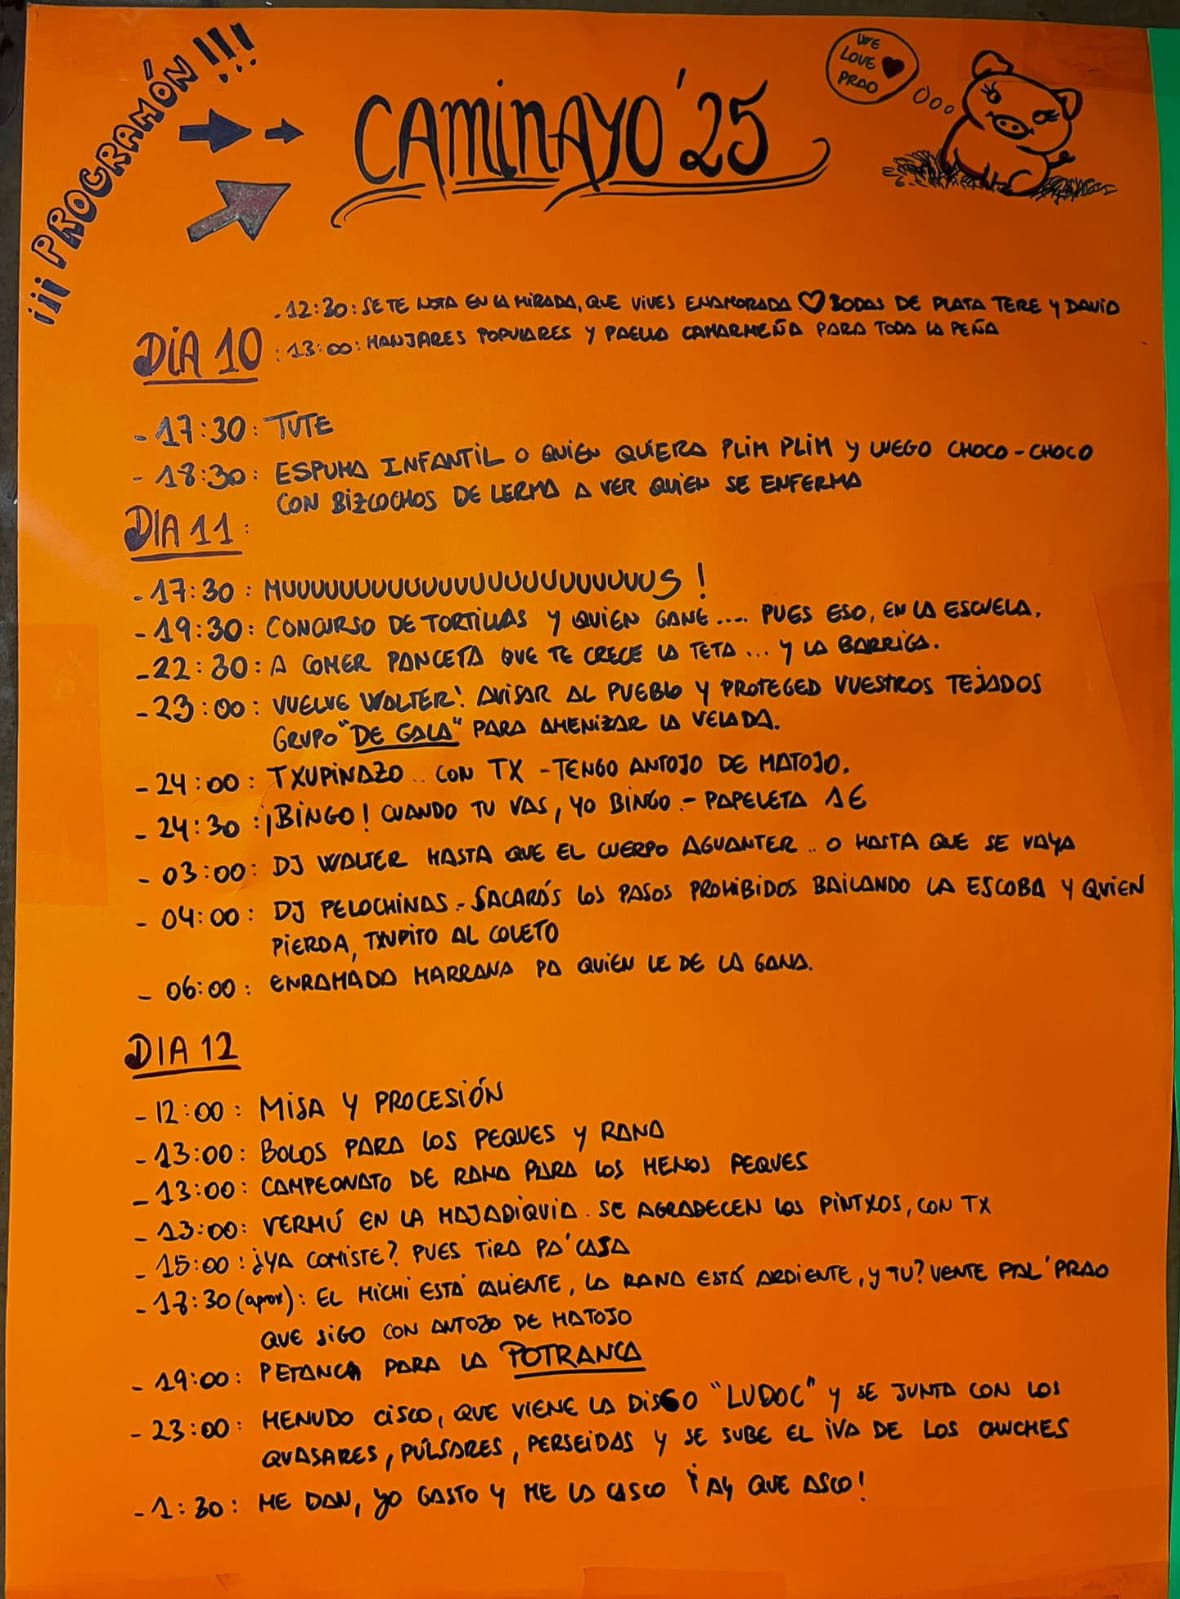 ¡¡¡PROGRAMÓN!!!
CAMINAYO'25
WE
LOVE ♥
PRAO
DIA 10
-12:30: SE TE NOTA EN LA MIRADA, QUE VIVES ENAMORADA ♡ BODAS DE PLATA TERE Y DAVID
:13:00: MANJARES POPULARES Y PAELLA CAMARMEÑA PARA TODA LA PEÑA
-17:30: TUTE
-18:30: ESPUMA INFANTIL O QUIEN QUIERA PLIM PLIM Y LUEGO CHOCO-CHOCO
CON BIZCOCHOS DE LERMA A VER QUIEN SE ENFERMA
DIA 11:
-17:30: MUUUUUUUUUUUUUUUUUUUUUUUUS!
-19:30: CONCURSO DE TORTILLAS Y QUIEN GANE.... PUES ESO, EN LA ESCUELA.
-22:30: A COMER PANCETA QUE TE CRECE LA TETA... Y LA BARRIGA.
-23:00: VUELVE WALTER! AVISAR AL PUEBLO Y PROTEGED VUESTROS TEJADOS
GRUPO "DE GALA" PARA AMENIZAR LA VELADA.
-24:00: TXUPINAZO.. CON TX -TENGO ANTOJO DE MATOJO.
-24:30: ¡BINGO! CUANDO TU VAS, YO BINGO.- PAPELETA 1€
-03:00: DJ WALTER HASTA QUE EL CUERPO AGUANTER.. O HASTA QUE SE VAYA
-04:00: DJ PELOCHINAS.- SACARÁS LOS PASOS PROHIBIDOS BAILANDO LA ESCOBA Y QUIEN
PIERDA, TXUPITO AL COLETO
-06:00: ENRAMADA MARRANA PA QUIEN LE DE LA GANA.
DIA 12
-12:00: MISA Y PROCESIÓN
-13:00: BOLOS PARA LOS PEQUES Y RANA
-13:00: CAMPEONATO DE RANA PARA LOS MENOS PEQUES
-13:00: VERMÚ EN LA MAJADIQUIA. SE AGRADECEN LOS PINTXOS, CON TX
-15:00: ¿YA COMISTE? PUES TIRA PA'CASA
-17:30 (aprox): EL MICHI ESTÁ CALIENTE, LA RANA ESTÁ ARDIENTE, Y TU? VENTE PAL'PRAO
QUE SIGO CON ANTOJO DE MATOJO
-19:00: PETANCA PARA LA POTRANCA
-23:00: MENUDO CISCO, QUE VIENE LA DISCO "LUDOC" Y SE JUNTA CON LOS
QUASARES, PÚLSARES, PERSEIDAS Y SE SUBE EL IVA DE LOS CHUCHES
-1:30: ME DAN, YO GASTO Y ME LA CASCO ¡AY QUE ASCO!